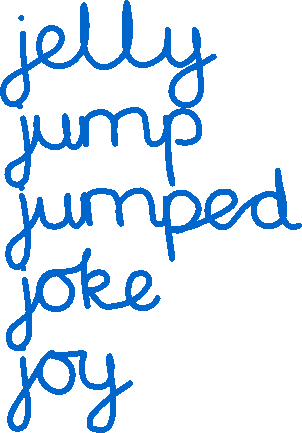 jelly
jump
jumped
joke
joy